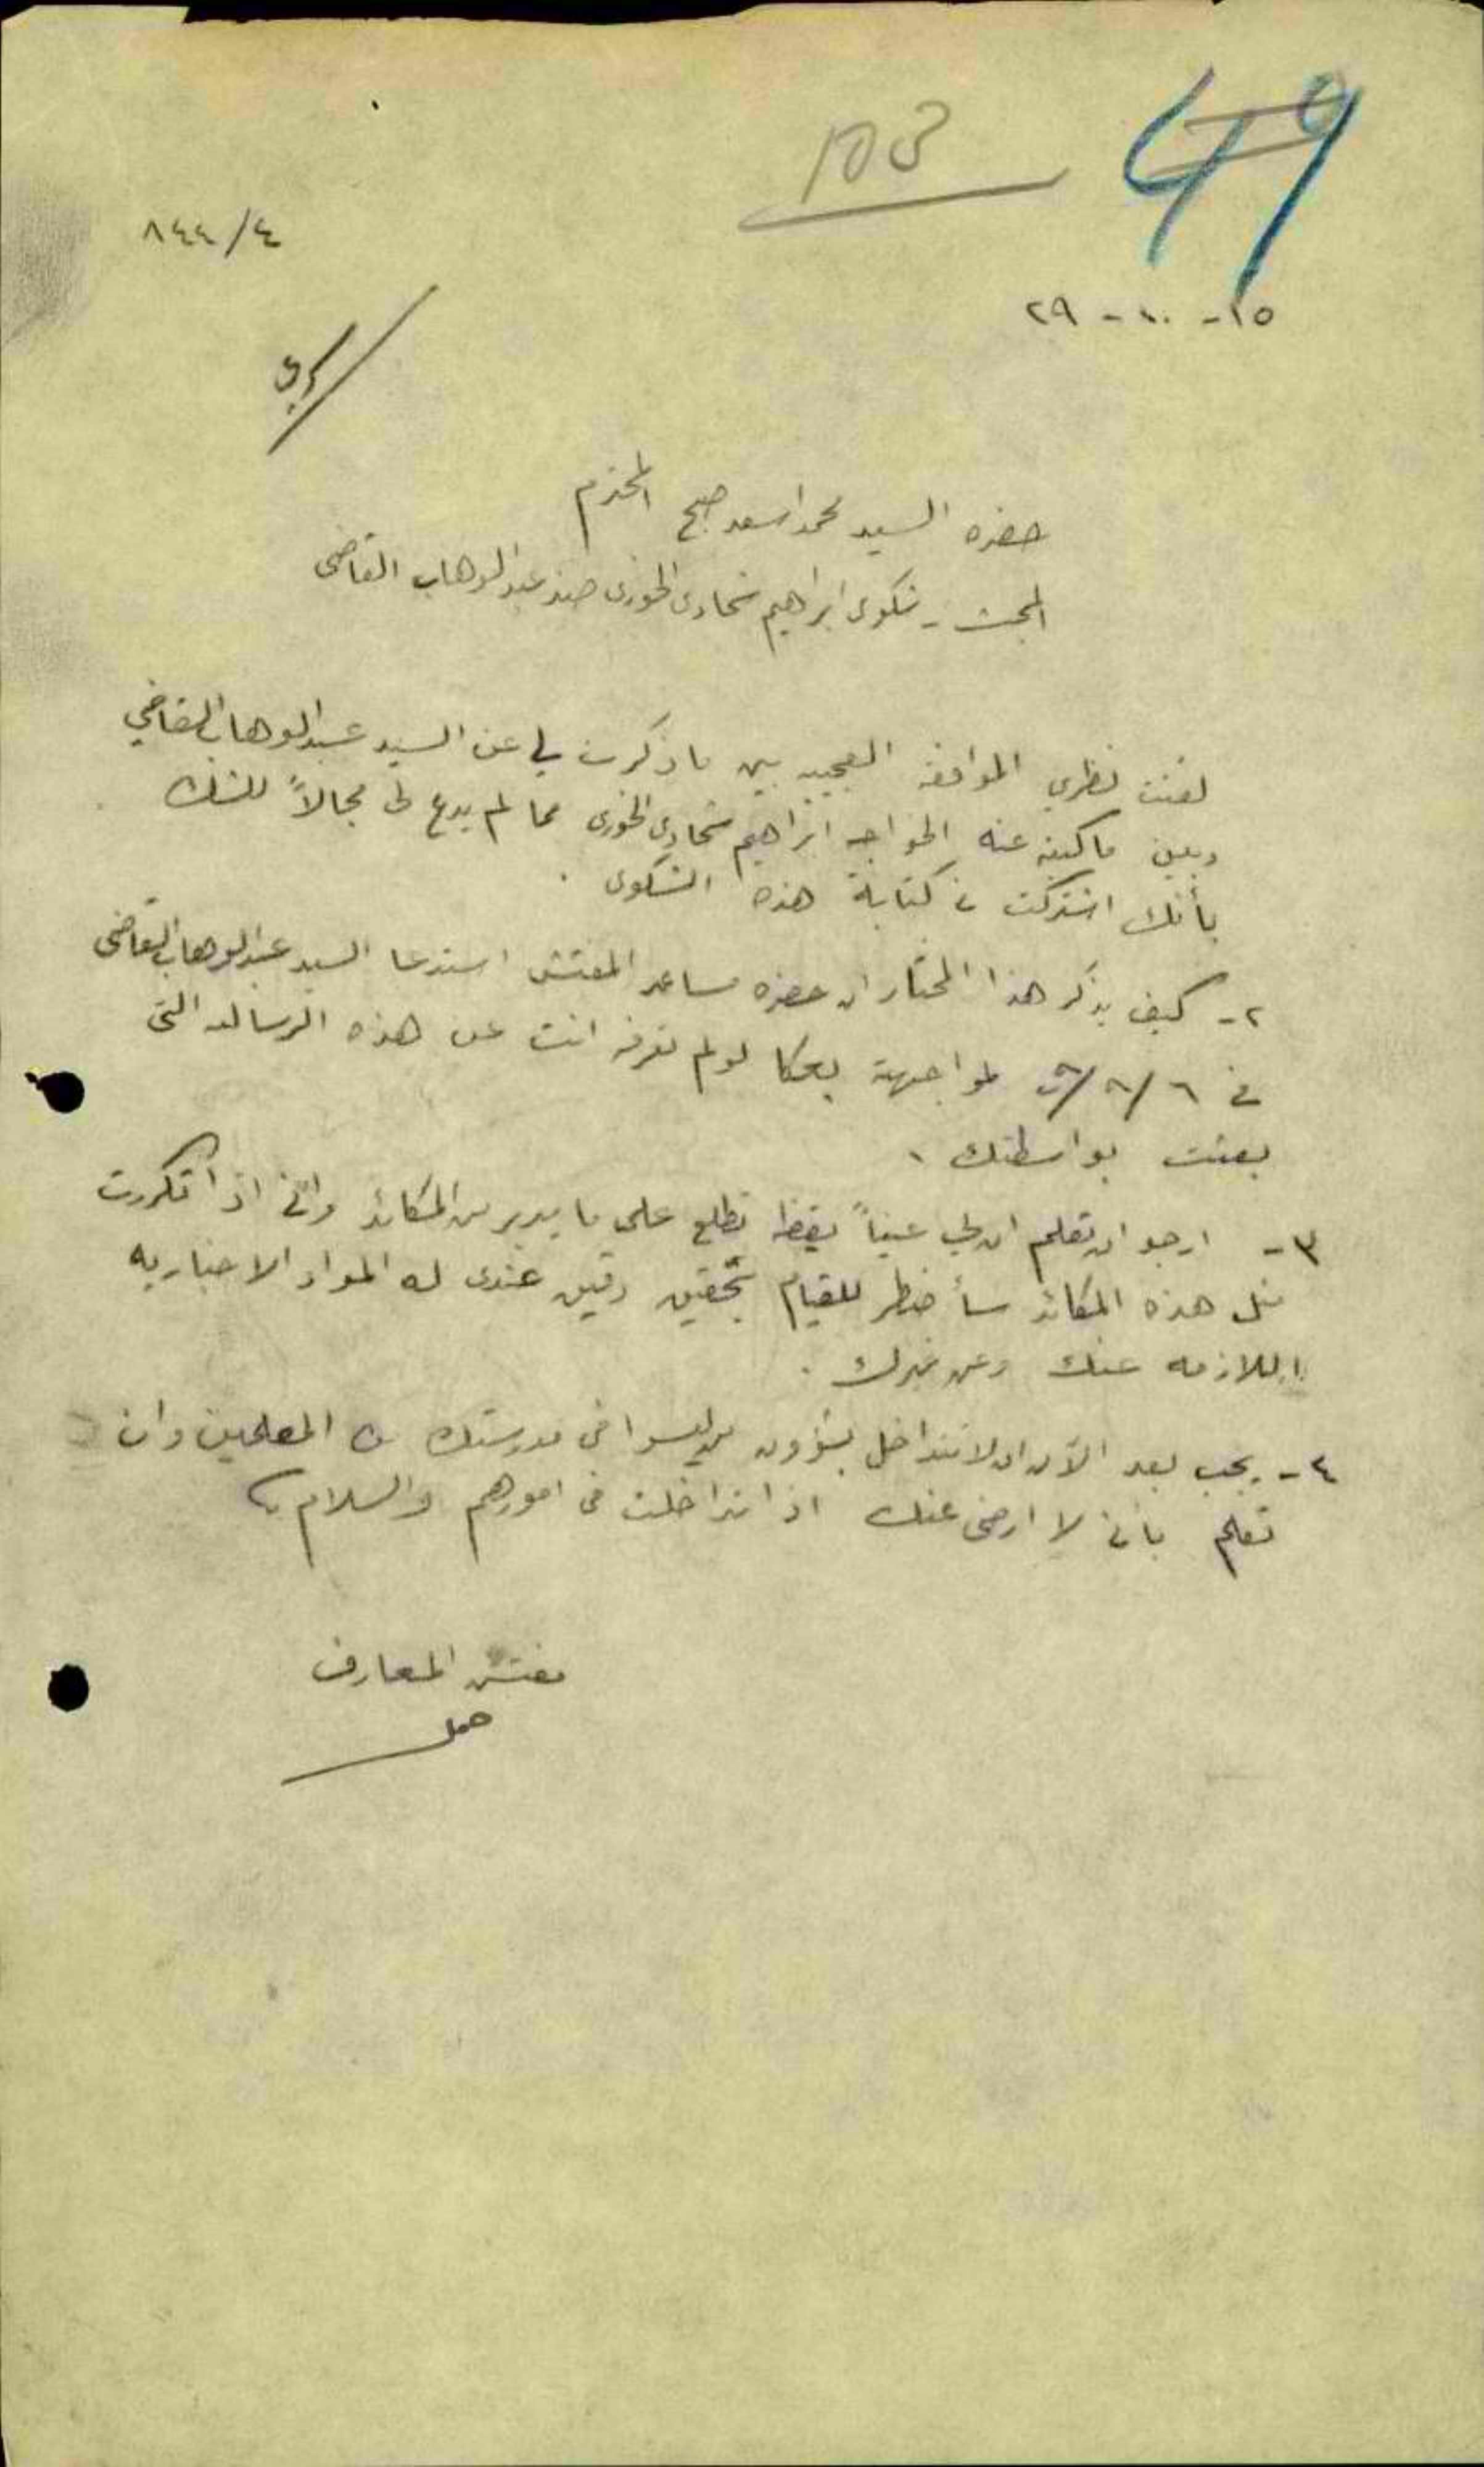 49
٨٤٤/٤
١٥ - ١٠ - ٢٩
سري
حضرة السيد محمد اسعد صبح المحترم
المبحث - شكوى ابراهيم شحادى الخورى ضد عبد الوهاب القاضى
لفتت نظري الموافقه العجيبه بين ما ذكرت لي عن السيد عبد الوهاب القاضي
وبين ما كتبه عنه الخواجه ابراهيم شحادى الخورى مما لم يدع لى مجالاً للشك
بأنك اشتركت في كتابة هذه الشكوى .
٢- كيف يذكر هذا المختار ان حضرة مساعد المفتش استدعا السيد عبد الوهاب القاضى
في ٦/٨/ لمواجهته بعكا لو لم تعرفه انت عن هذه الرساله التى
بعثت بواسطتك .
٣- ارجو ان تعلم ان لي عيناً يقظه تطلع على ما يدبر من المكائد واني اذا تكررت
مثل هذه المكائد سأضطر للقيام بتحقيق دقيق عندى له المواد الاخباريه
اللازمه عنك وعن غيرك .
٤- يجب بعد الآن ان لا تتداخل بشؤون من ليسوا فى مدرستك من المعلمين وان
تعلم باني لا ارضى عنك اذا تداخلت فى امورهم والسلام
مفتش المعارف